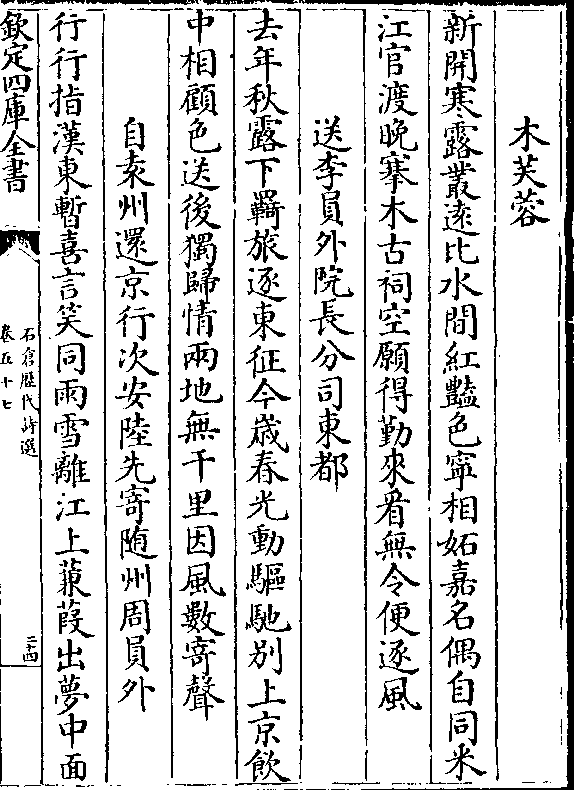 木芙蓉
新開寒露叢遠比水間紅豔色寧相妬嘉名偶自同米
江官渡晚搴木古祠空願得勤來看無令便逐風
送李員外院長分司東都
去年秋露下羇旅逐東征今歳春光動驅馳别上京飲
中相顧色送後獨歸情兩地無千里因風數寄聲
自袁州還京行次安陸先寄随州周員外
行行指漢東暫喜言笑同雨雪離江上蒹葭出夢中面
欽定四庫全書
石倉歴代詩選
卷五十七
二十四